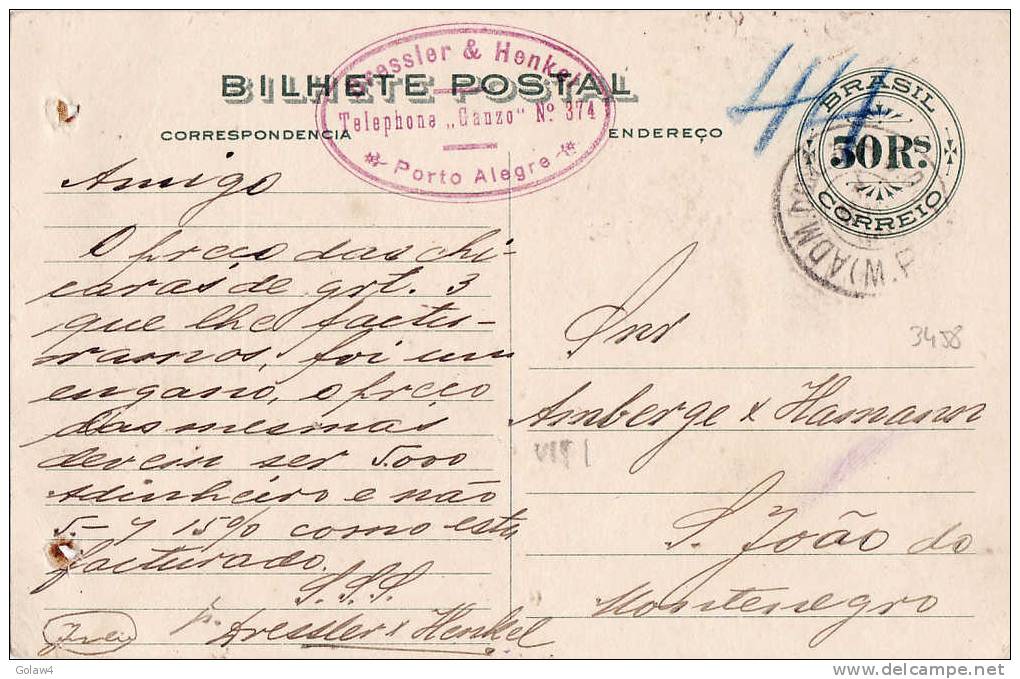 Dressler & Henkel
Telephone „Ganzo" Nº 374
Porto Alegre
BILHETE POSTAL
CORRESPONDENCIA
ENDEREÇO
BRASIL
50 Rs.
CORREIO
44
3458
Amigo
O preço das chi-
caras de grt. 3
que lhe factu-
ramos, foi um
engano, o preço
das mesmas
devem ser 5.000
a dinheiro e não
5.- y 15% como esta
facturado.
S.S.S.
p. Dressler & Henkel
Snr
Amberge & Hamann
S. João do
Montenegro
Golaw4
www.delcampe.net